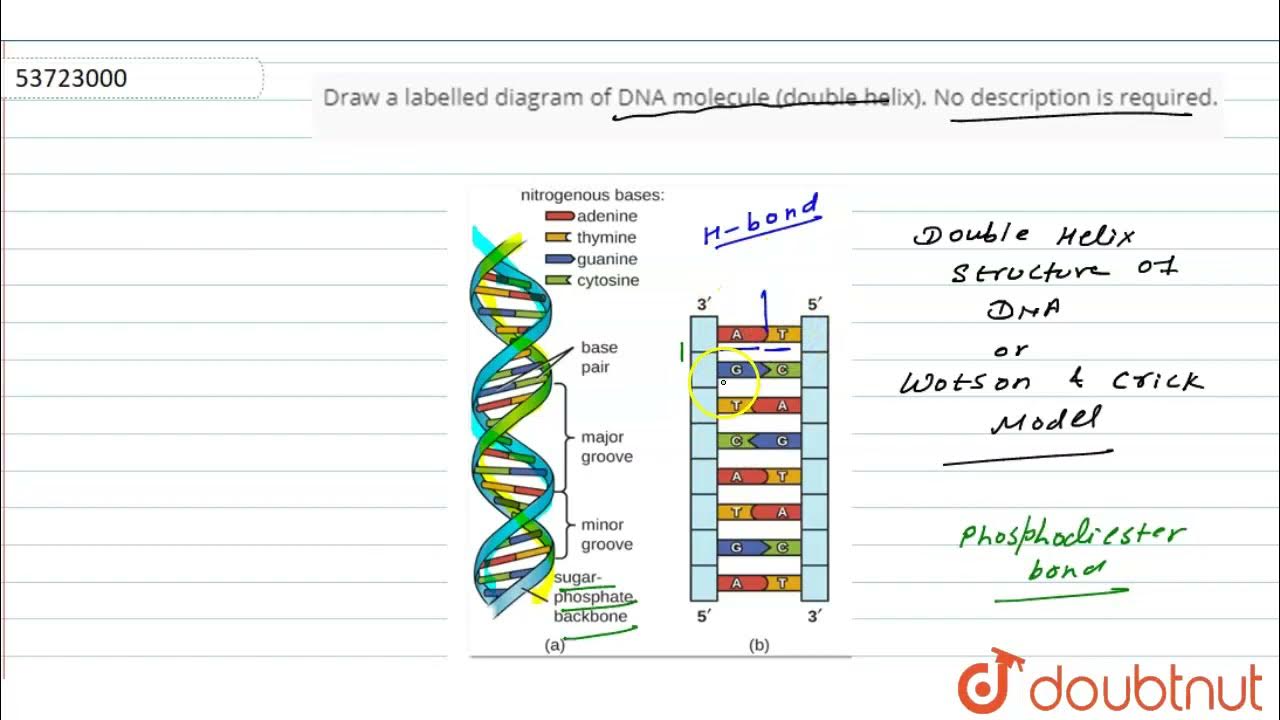 53723000
Draw a labelled diagram of DNA molecule (double helix). No description is required.
nitrogenous bases:
adenine
thymine
guanine
cytosine
base
pair
major
groove
minor
groove
sugar-
phosphate
backbone
(a)
H-bond
3′ 5′
A T
G C
T A
C G
A T
T A
G C
A T
5′ 3′
(b)
Double Helix
Structure of
DNA
or
Wotson & Crick
Model
Phosphodiester
bond
doubtnut